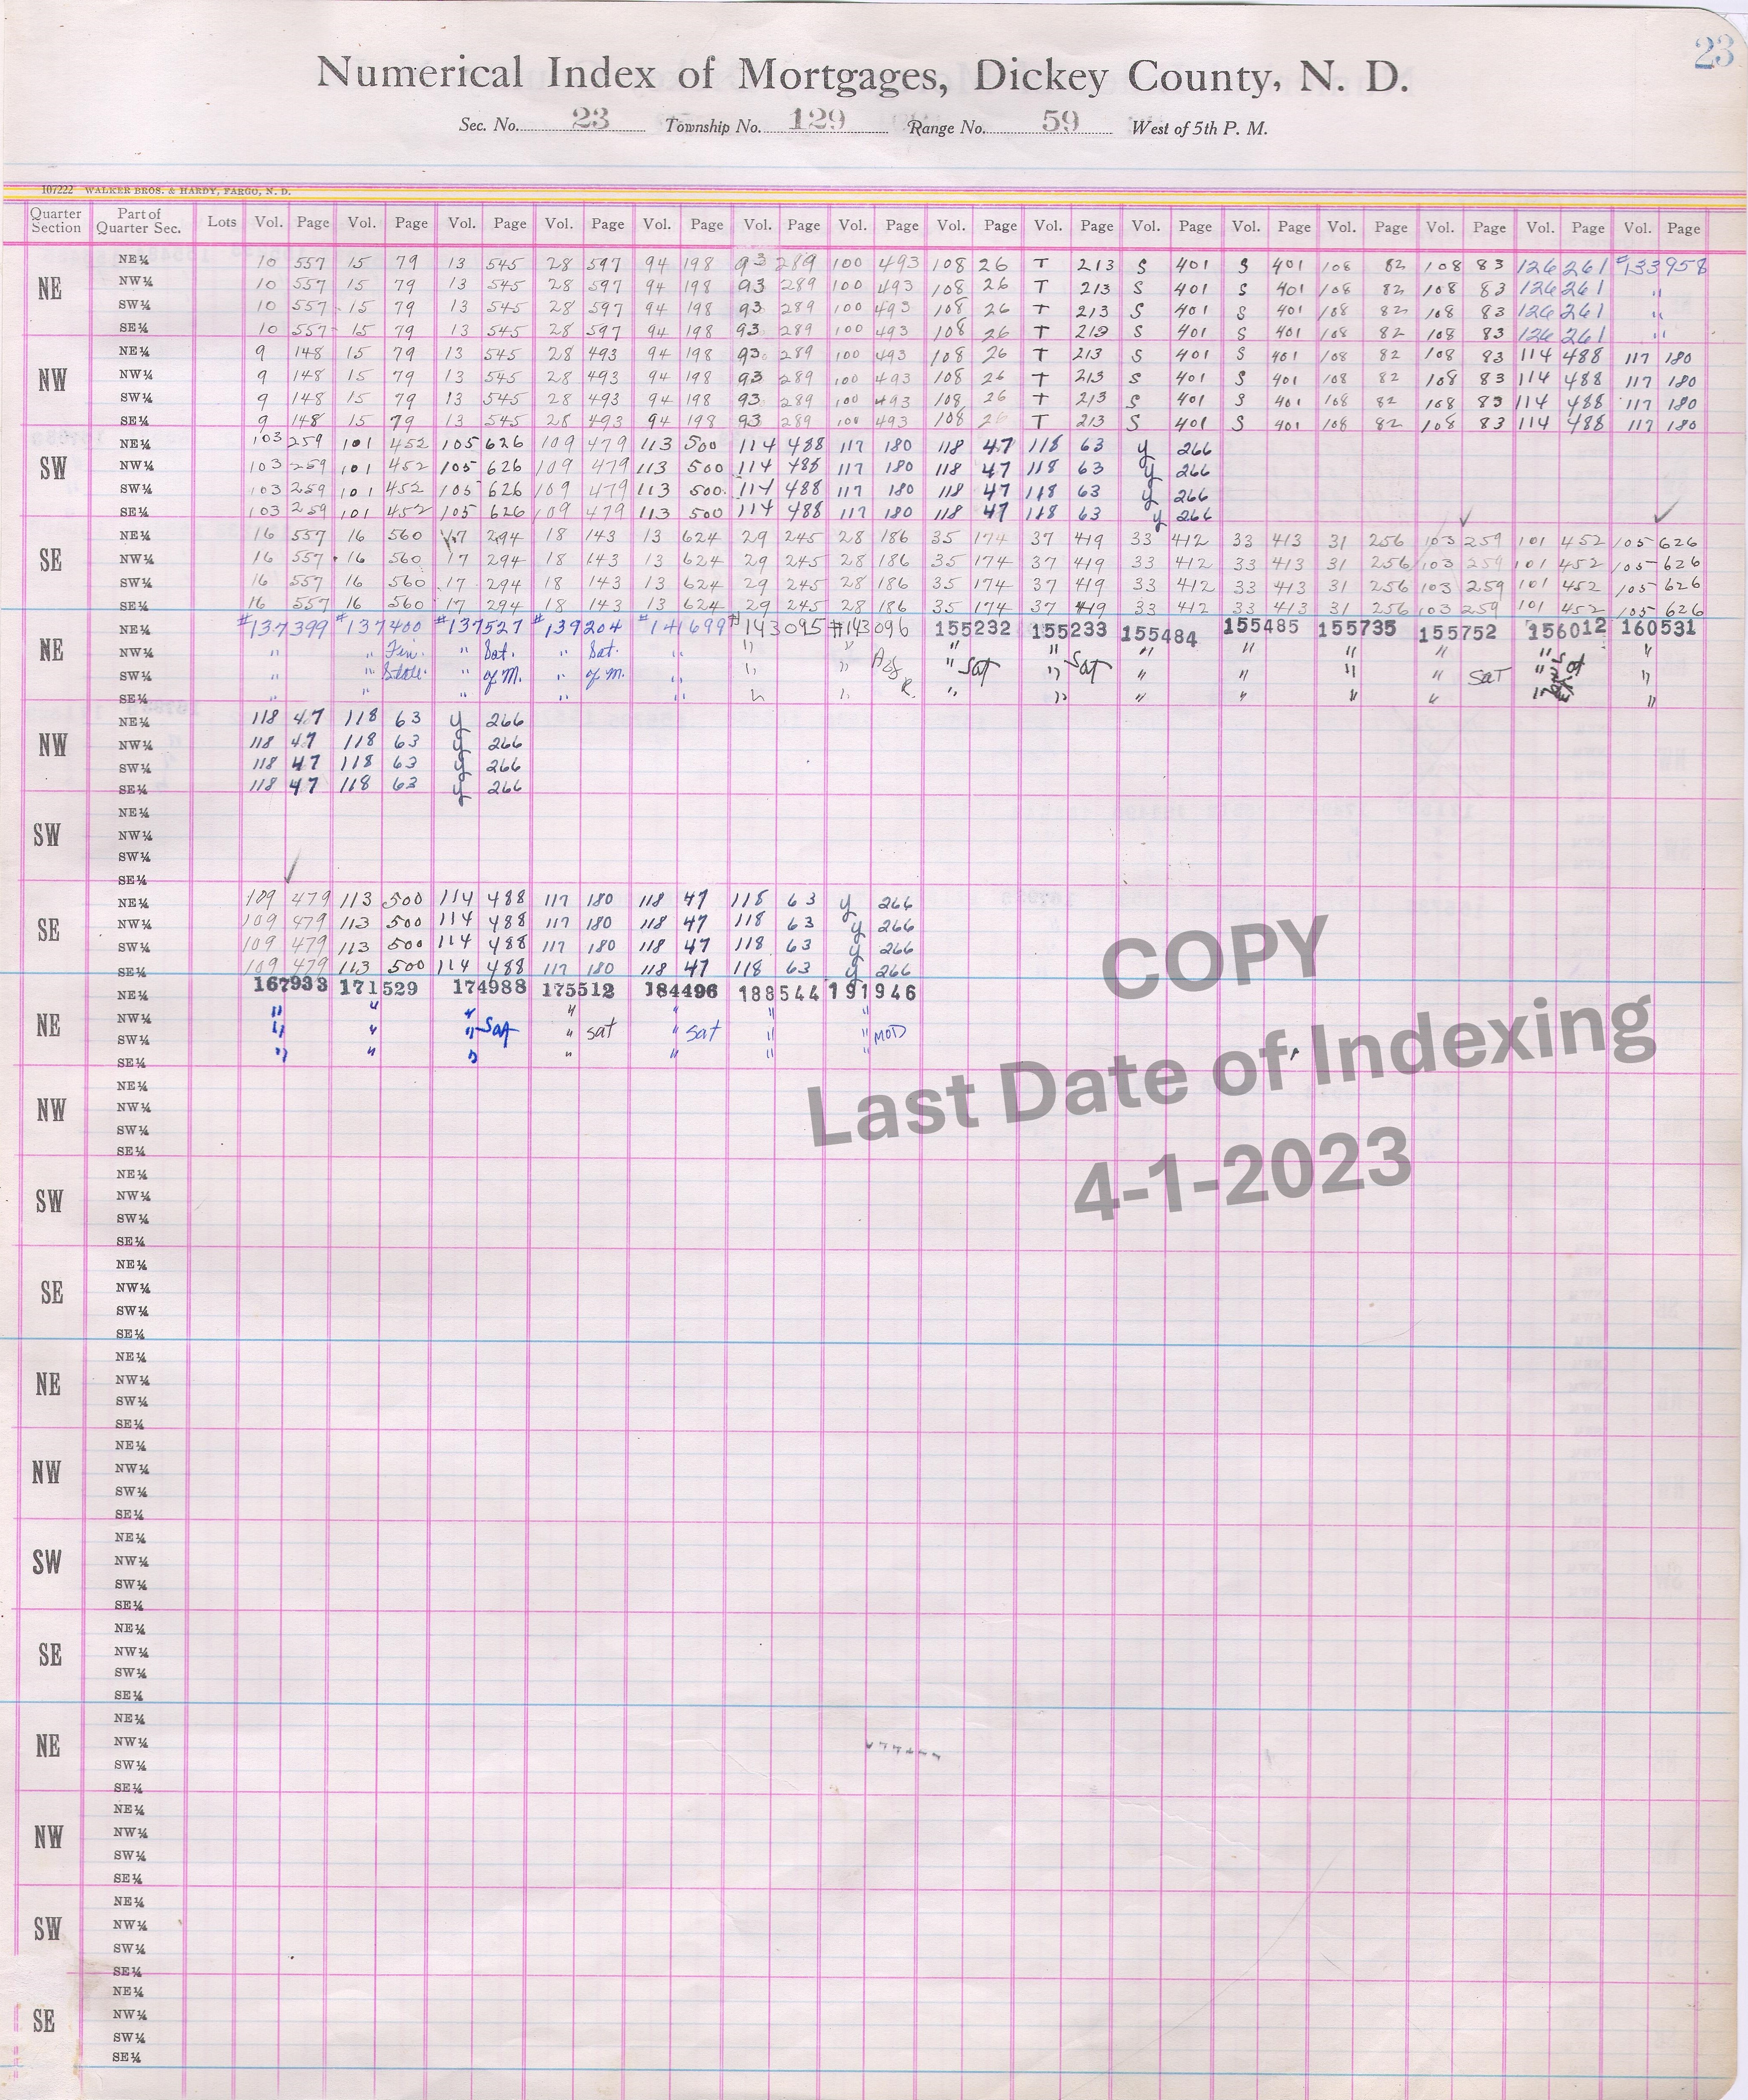 23
Numerical Index of Mortgages, Dickey County, N. D.
Sec. No. 23 Township No. 129 Range No. 59 West of 5th P. M.
107222 WALKER BROS. & HARDY, FARGO, N. D.
Quarter Section Part of Quarter Sec. Lots Vol. Page Vol. Page Vol. Page Vol. Page Vol. Page Vol. Page Vol. Page Vol. Page Vol. Page Vol. Page Vol. Page Vol. Page Vol. Page Vol. Page Vol. Page
NE NE¼ 10 557 15 79 13 545 28 597 94 198 93 289 100 493 108 26 T 213 S 401 S 401 108 82 108 83 126 261 #133958
NW¼ 10 557 15 79 13 545 28 597 94 198 93 289 100 493 108 26 T 213 S 401 S 401 108 82 108 83 126 261 "
SW¼ 10 557 15 79 13 545 28 597 94 198 93 289 100 493 108 26 T 213 S 401 S 401 108 82 108 83 126 261 "
SE¼ 10 557 15 79 13 545 28 597 94 198 93 289 100 493 108 26 T 213 S 401 S 401 108 82 108 83 126 261 "
NW NE¼ 9 148 15 79 13 545 28 493 94 198 93 289 100 493 108 26 T 213 S 401 S 401 108 82 108 83 114 488 117 180
NW¼ 9 148 15 79 13 545 28 493 94 198 93 289 100 493 108 26 T 213 S 401 S 401 108 82 108 83 114 488 117 180
SW¼ 9 148 15 79 13 545 28 493 94 198 93 289 100 493 108 26 T 213 S 401 S 401 108 82 108 83 114 488 117 180
SE¼ 9 148 15 79 13 545 28 493 94 198 93 289 100 493 108 26 T 213 S 401 S 401 108 82 108 83 114 488 117 180
SW NE¼ 103 259 101 452 105 626 109 479 113 500 114 488 117 180 118 47 118 63 y 266
NW¼ 103 259 101 452 105 626 109 479 113 500 114 488 117 180 118 47 118 63 y 266
SW¼ 103 259 101 452 105 626 109 479 113 500 114 488 117 180 118 47 118 63 y 266
SE¼ 103 259 101 452 105 626 109 479 113 500 114 488 117 180 118 47 118 63 y 266
SE NE¼ 16 557 16 560 17 294 18 143 13 624 29 245 28 186 35 174 37 419 33 412 33 413 31 256 103 259 101 452 105 626
NW¼ 16 557 16 560 17 294 18 143 13 624 29 245 28 186 35 174 37 419 33 412 33 413 31 256 103 259 101 452 105 626
SW¼ 16 557 16 560 17 294 18 143 13 624 29 245 28 186 35 174 37 419 33 412 33 413 31 256 103 259 101 452 105 626
SE¼ 16 557 16 560 17 294 18 143 13 624 29 245 28 186 35 174 37 419 33 412 33 413 31 256 103 259 101 452 105 626
NE NE¼ #137399 #137400 #137527 #139204 #141699 #143095 #143096 155232 155233 155484 155485 155735 155752 156012 160531
NW¼ " " Fin. " Sat. " Sat. " " " " " " " " " " "
SW¼ " " State. " of M. " of M. " " " " Sat " Sat " " " " Sat " "
SE¼ " " " " " " " R. " " " " " " " "
NW NE¼ 118 47 118 63 y 266
NW¼ 118 47 118 63 y 266
SW¼ 118 47 118 63 y 266
SE¼ 118 47 118 63 y 266
SW NE¼
NW¼
SW¼
SE¼
SE NE¼ 109 479 113 500 114 488 117 180 118 47 118 63 y 266
NW¼ 109 479 113 500 114 488 117 180 118 47 118 63 y 266
SW¼ 109 479 113 500 114 488 117 180 118 47 118 63 y 266
SE¼ 109 479 113 500 114 488 117 180 118 47 118 63 y 266
NE NE¼ 167933 171529 174988 175512 184496 188544 191946
NW¼ " " " " " " "
SW¼ " " " Sat " Sat " Sat " " MOD
SE¼ " " " " " " "
NW NE¼
NW¼
SW¼
SE¼
SW NE¼
NW¼
SW¼
SE¼
SE NE¼
NW¼
SW¼
SE¼
NE NE¼
NW¼
SW¼
SE¼
NW NE¼
NW¼
SW¼
SE¼
SW NE¼
NW¼
SW¼
SE¼
SE NE¼
NW¼
SW¼
SE¼
NE NE¼
NW¼
SW¼
SE¼
NW NE¼
NW¼
SW¼
SE¼
SW NE¼
NW¼
SW¼
SE¼
SE NE¼
NW¼
SW¼
SE¼
COPY
Last Date of Indexing
4-1-2023